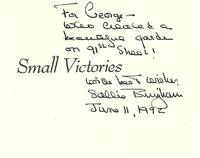 For George—
who created a
beautiful garden
on 91st Street!
Small Victories
with best wishes,
Sallie Bingham
June 11, 1992